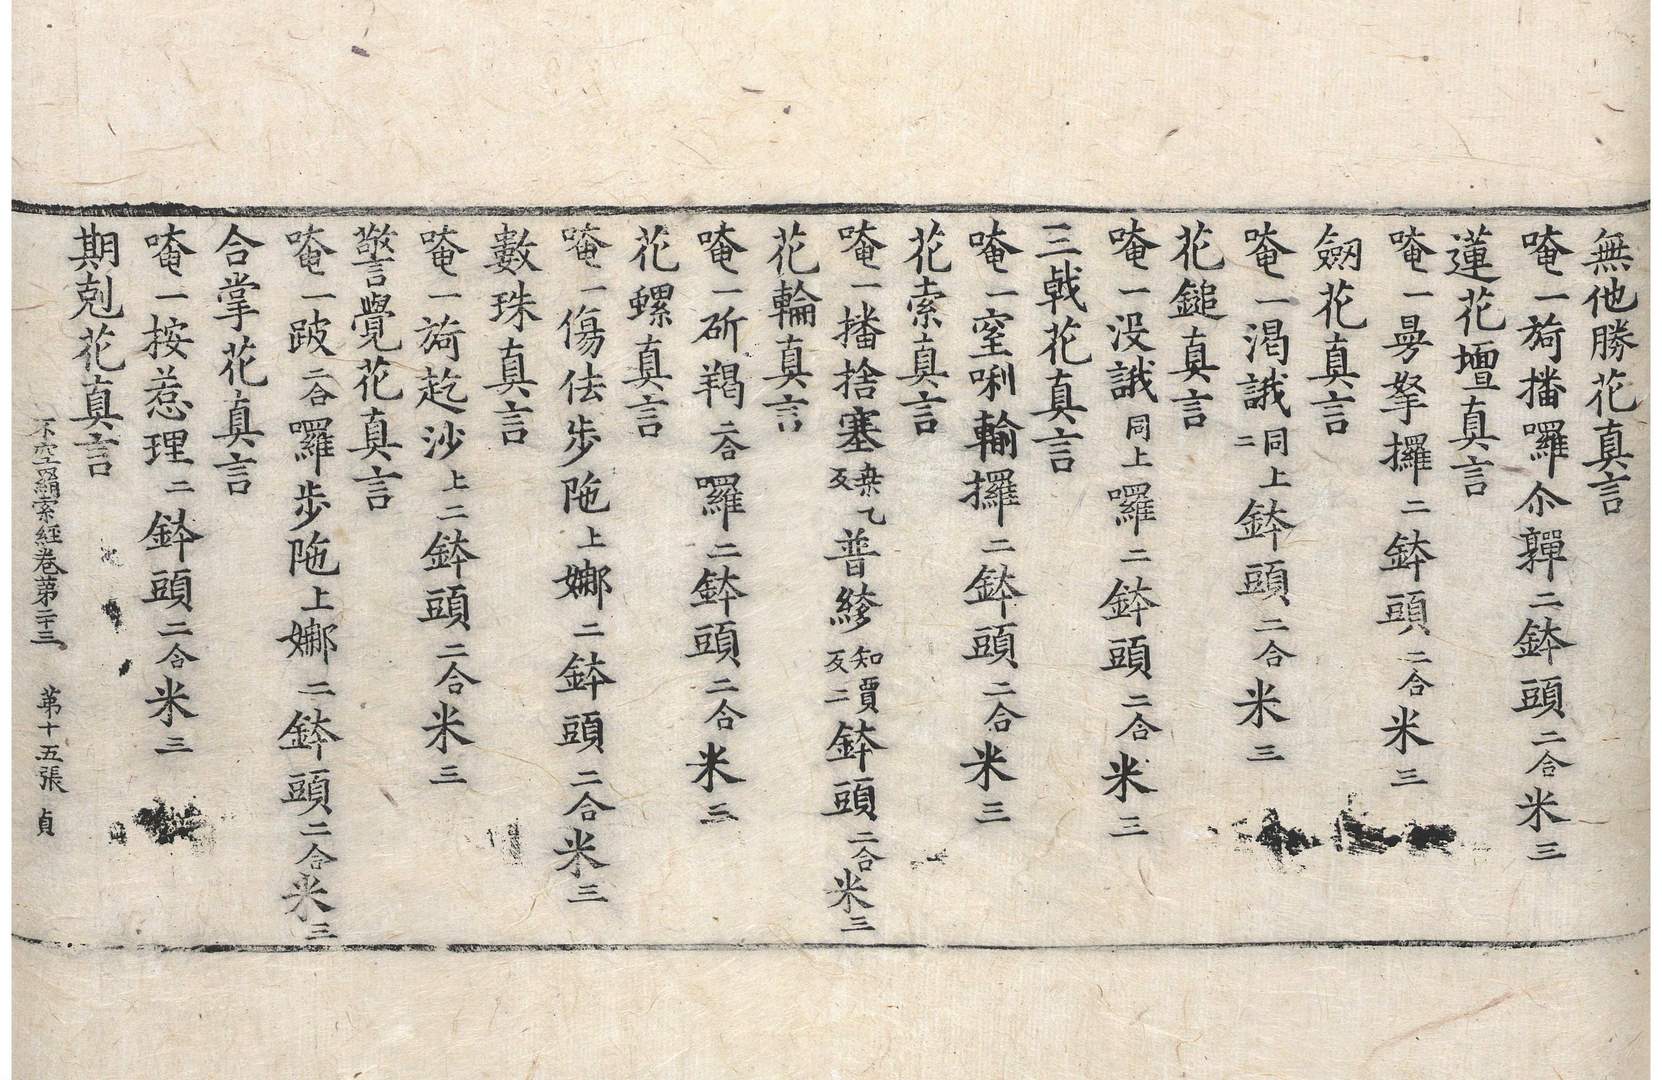 無他勝花真言
唵一旖播囉尒軃二鉢頭二合米三
蓮花壇真言
唵一㝵拏攞二鉢頭二合米三
劒花真言
唵一渴誐同上二鉢頭二合米三
花鎚真言
唵一没誐同上囉二鉢頭二合米三
三戟花真言
唵一窒唎輸攞二鉢頭二合米三
花索真言
唵一播捨塞桒乙反普䋾知賈反二鉢頭二合米三
花輪真言
唵一斫羯二合囉二鉢頭二合米三
花螺真言
唵一傷佉步陁上娜二鉢頭二合米三
數珠真言
唵一旖訖沙上二鉢頭二合米三
警覺花真言
唵一跛二合囉步陁上娜二鉢頭二合米三
合掌花真言
唵一按惹理二鉢頭二合米三
期剋花真言
不空羂索經卷第二十三 第十五張 貞